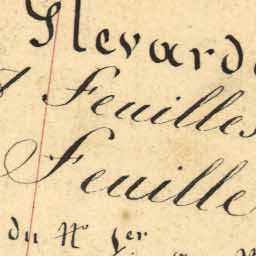 Glevard
Feuilles
Feuille
du N° 1er